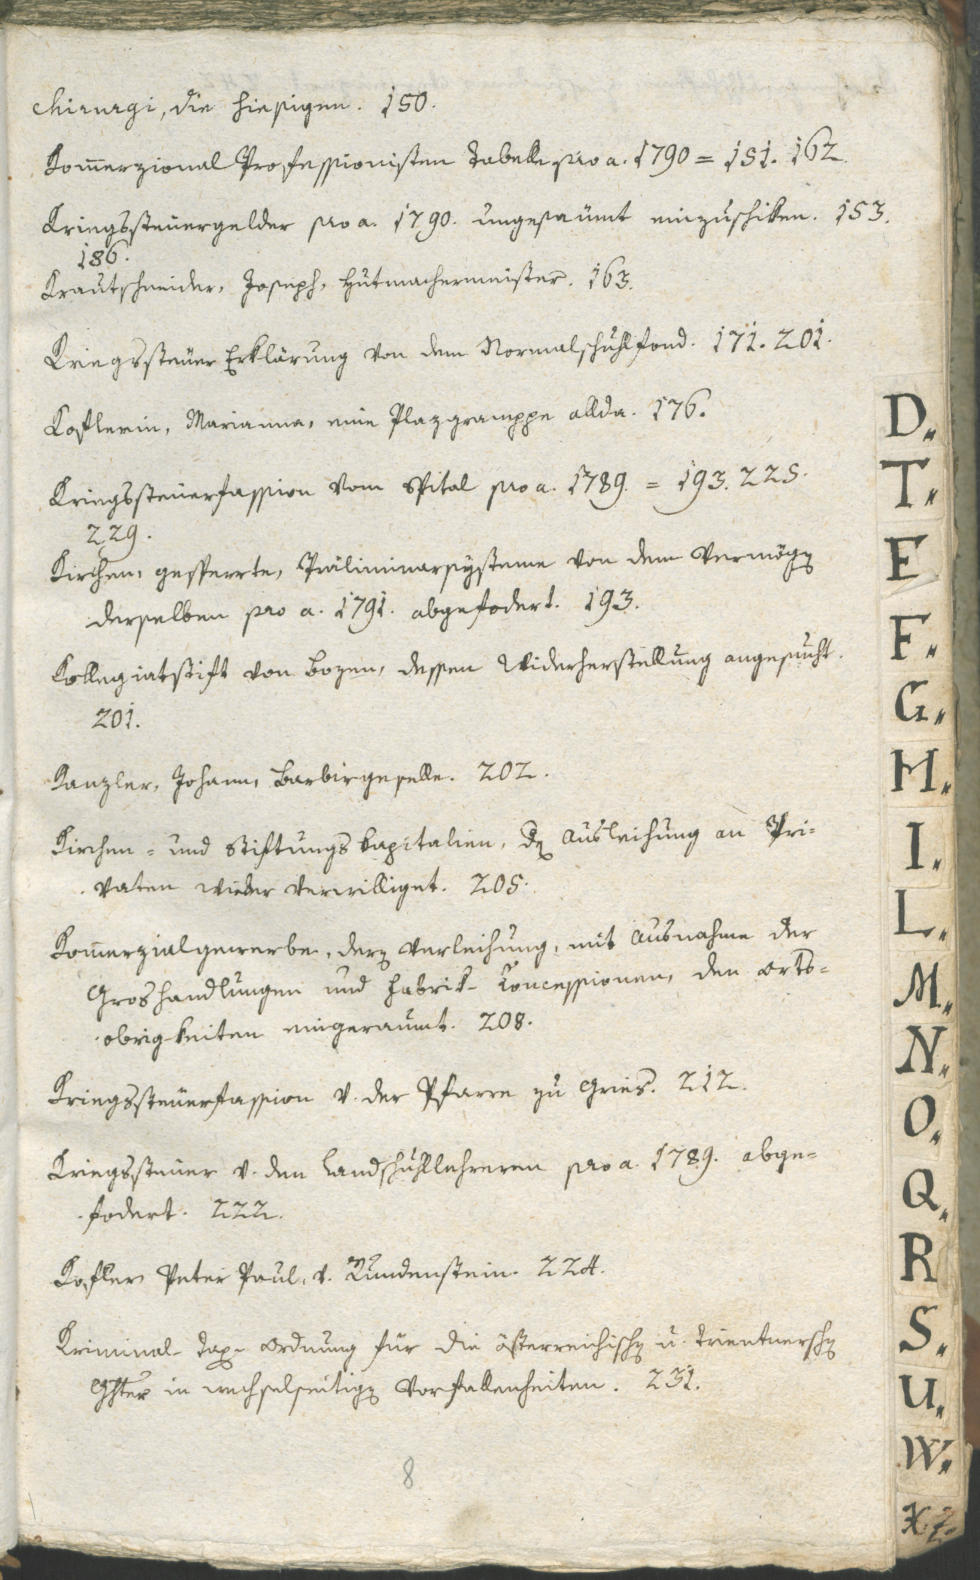 Chirurgi, die hiesigen. 150.
Kom̅erzional Professionisten Tabelle pro a. 1790 = 151. 162.
Kriegssteuergelder pro a. 1790. ungesaümt einzuschiken. 153.
186.
Krautschneider, Joseph, Hutmachermeister. 163.
Kriegssteuer Erklärung von dem Normalschuhlfond. 171. 201.
Koflerin, Marianna, eine Plazgramppe allda. 176.
Kriegssteuerfassion vom Spital pro a. 1789. = 193. 225.
229.
Kirchen, gesperrte, Präliminarsysteme von dem Vermög
derselben pro a. 1791. abgefodert. 193.
Kollegiatstift von Bozen, dessen Widerherstellung angesucht.
201.
Kanzler, Johann, Barbirgeselle. 202.
Kirchen- und Stiftungs kapitalien, Ausleihung an Pri=
vaten wieder verwilliget. 205.
Kom̅erzialgewerbe, der Verleihung, mit Ausnahme der
Groshandlungen und Fabrik- Koncessionen, den Orts=
obrigkeiten eingeraumt. 208.
Kriegssteuerfassion v. der Pfarre zu Gries. 212.
Kriegssteuer v. den Landschuhllehreren pro a. 1789. abge=
fodert. 222.
Kofler Peter Paul, v. Rundenstein. 224.
Kriminal- Tax- Ordnung für die österreichisch u. Trientnersch
in wechselseitig Vorfallenheiten. 231.
8
D.
T.
E
F.
G.
H.
I.
L.
M.
N.
O.
Q.
R
S.
U.
W.
X.Z.